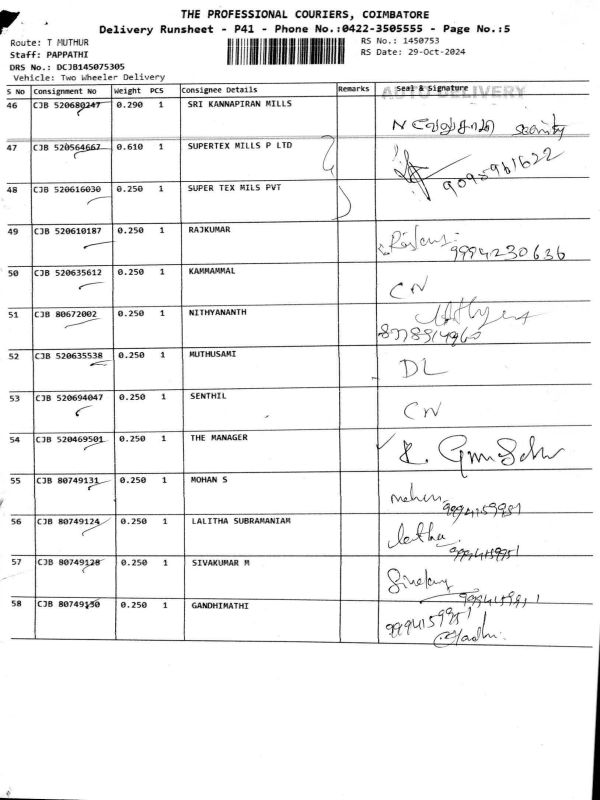 THE PROFESSIONAL COURIERS, COIMBATORE
Delivery Runsheet - P41 - Phone No.:0422-3505555 - Page No.:5
Route: T MUTHUR
RS No.: 1450753
Staff: PAPPATHI
RS Date: 29-Oct-2024
DRS No.: DCJB145075305
Vehicle: Two Wheeler Delivery
S No Consignment No Weight PCS Consignee Details Remarks Seal & Signature
AUTO DELIVERY
46 CJB 520680247 0.290 1 SRI KANNAPIRAN MILLS
47 CJB 520564667 0.610 1 SUPERTEX MILLS P LTD 9095961622
48 CJB 520616030 0.250 1 SUPER TEX MILS PVT
49 CJB 520610187 0.250 1 RAJKUMAR 9994230636
50 CJB 520635612 0.250 1 KAMMAMMAL CN
51 CJB 80672002 0.250 1 NITHYANANTH
52 CJB 520635538 0.250 1 MUTHUSAMI DL
53 CJB 520694047 0.250 1 SENTHIL CN
54 CJB 520469501 0.250 1 THE MANAGER
55 CJB 80749131 0.250 1 MOHAN S mohan 9994159951
56 CJB 80749124 0.250 1 LALITHA SUBRAMANIAM latha 9994159951
57 CJB 80749128 0.250 1 SIVAKUMAR M
58 CJB 80749130 0.250 1 GANDHIMATHI 9994159951